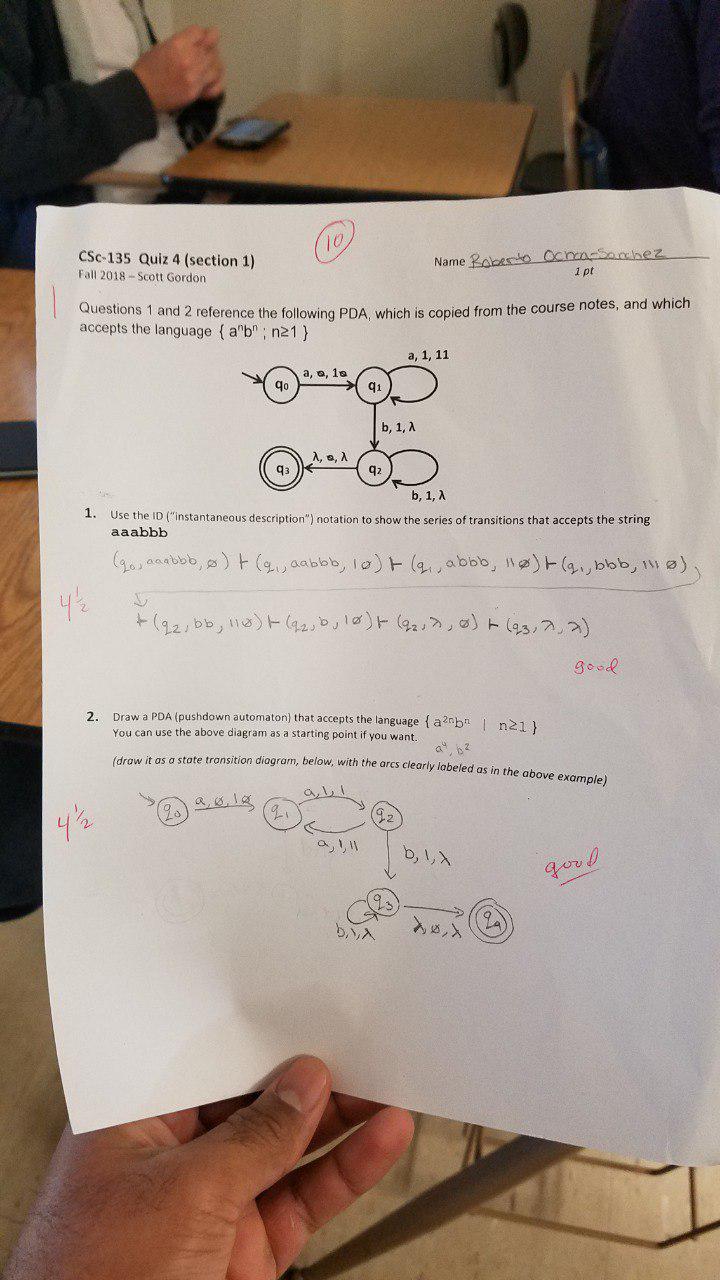 10
CSc-135 Quiz 4 (section 1)
Name Roberto Ochoa-Sanchez
Fall 2018 – Scott Gordon
1 pt
1
Questions 1 and 2 reference the following PDA, which is copied from the course notes, and which
accepts the language { aⁿbⁿ ; n≥1 }
a, 1, 11
q0
a, ø, 1ø
q1
b, 1, λ
q3
λ, ø, λ
q2
b, 1, λ
1. Use the ID ("instantaneous description") notation to show the series of transitions that accepts the string
aaabbb
(q0, aaabbb, ø) ⊢ (q1, aabbb, 1ø) ⊢ (q1, abbb, 11ø) ⊢ (q1, bbb, 111ø)
4½
⊢ (q2, bb, 11ø) ⊢ (q2, b, 1ø) ⊢ (q2, λ, ø) ⊢ (q3, λ, λ)
good
2. Draw a PDA (pushdown automaton) that accepts the language { a²ⁿbⁿ | n≥1 }
You can use the above diagram as a starting point if you want.
a⁴, b²
(draw it as a state transition diagram, below, with the arcs clearly labeled as in the above example)
4½
q0
a, ø, 1ø
q1
a, 1, 1
q2
a, 1, 11
b, 1, λ
good
q3
b, 1, λ
λ, ø, λ